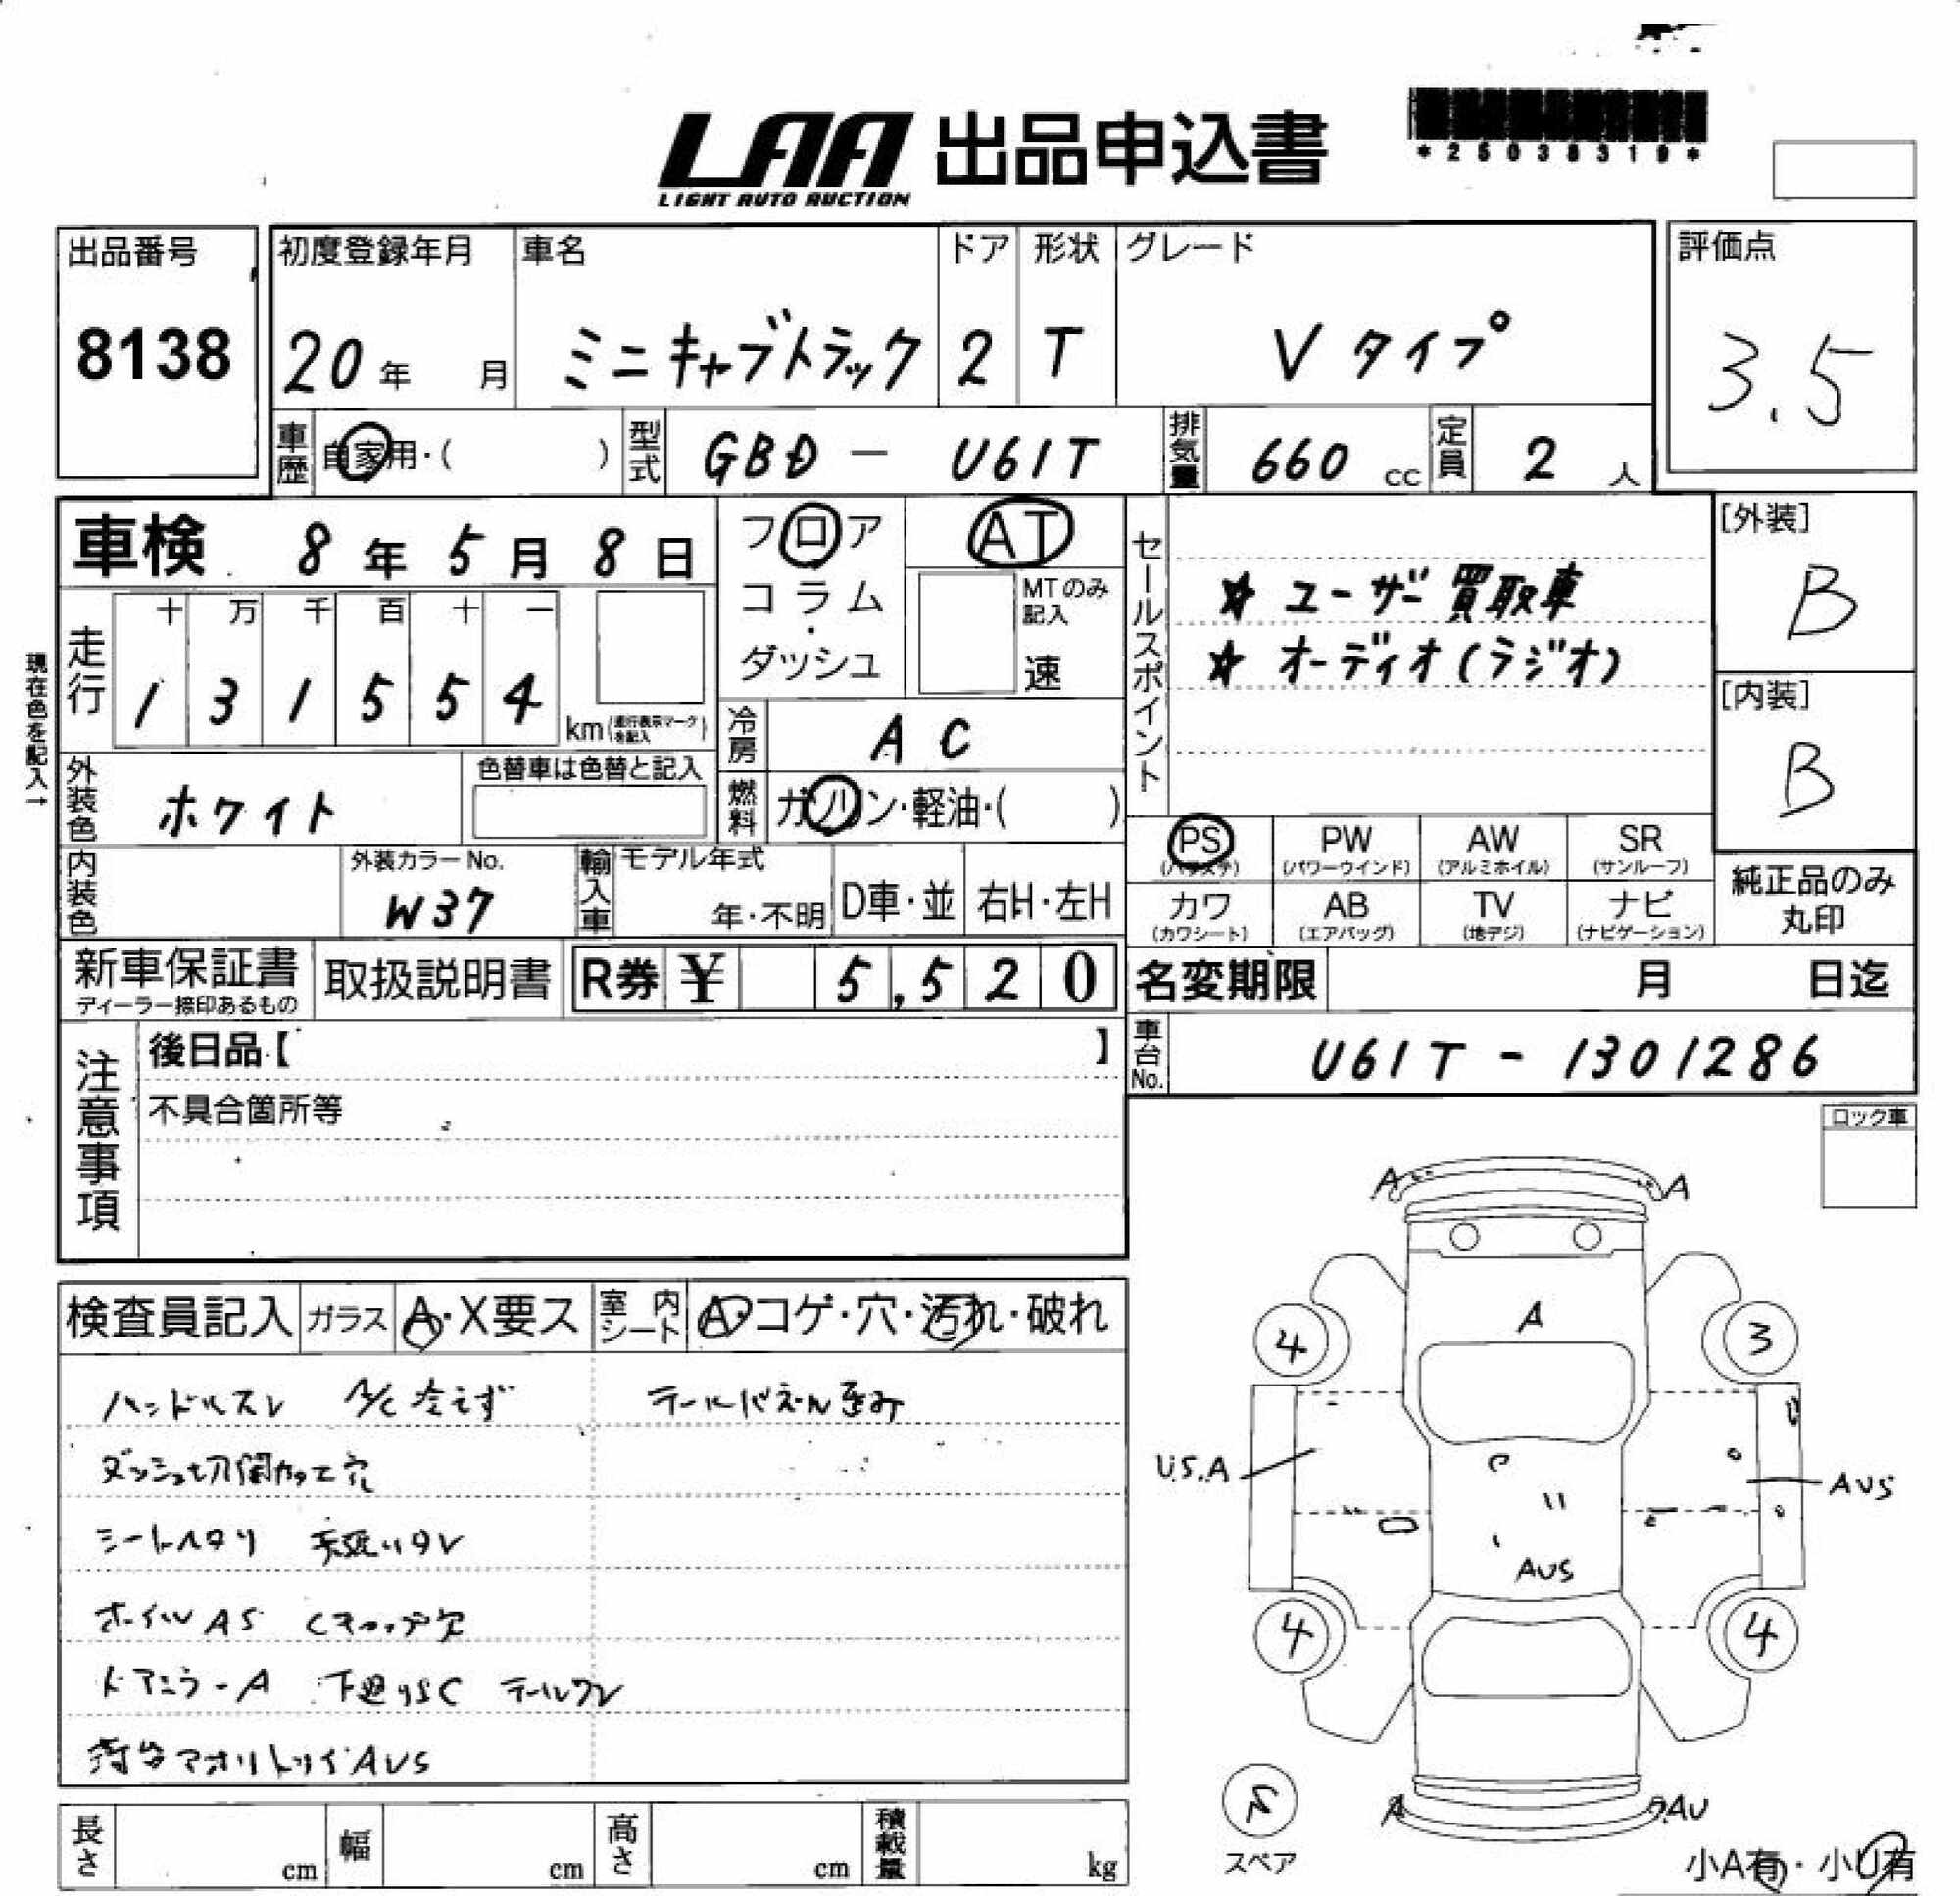 LAA 出品申込書
LIGHT AUTO AUCTION
*25038319*
出品番号 初度登録年月 車名 ドア 形状 グレード 評価点
8138 20年 月 ミニキャブトラック 2 T Vタイプ 3.5
車歴 自家用・( ) 型式 GBD - U61T 排気量 660 cc 定員 2 人
車検 8年5月8日 フロア AT セールスポイント [外装]
コラム・ダッシュ MTのみ記入 速 ☆ ユーザー買取車 B
現在色を記入→
走行 十 万 千 百 十 一 ☆ オーディオ(ラジオ)
1 3 1 5 5 4 km(走行表示マークを記入) [内装]
冷房 AC B
外装色 ホワイト 色替車は色替と記入 燃料 ガソリン・軽油・( )
PS (パワステ) PW (パワーウインド) AW (アルミホイル) SR (サンルーフ)
内装色 外装カラーNo. W37 輸入車 モデル年式 年・不明 D車・並 右H・左H
カワ (カワシート) AB (エアバッグ) TV (地デジ) ナビ (ナビゲーション) 純正品のみ丸印
新車保証書 ディーラー捺印あるもの 取扱説明書 R券 ¥ 5,520 名変期限 月 日迄
注意事項 後日品【 】 車台No. U61T - 1301286
不具合箇所等 ロック車
A A
検査員記入 ガラス A・X要ス 室内シート A・コゲ・穴・汚れ・破れ
A
4 3
ハンドルスレ A/C冷えず テールパネル歪み
ダッシュ切開カッテ穴
U.S.A AUS
シートヘタリ
AUS
ホイルAS Cキャップ欠
4 4
ドアミラーA 下廻りSC テールワレ
荷台アオリトリイAUS
A AU
スペア
長さ cm 幅 cm 高さ cm 積載量 kg
小A有・小U有